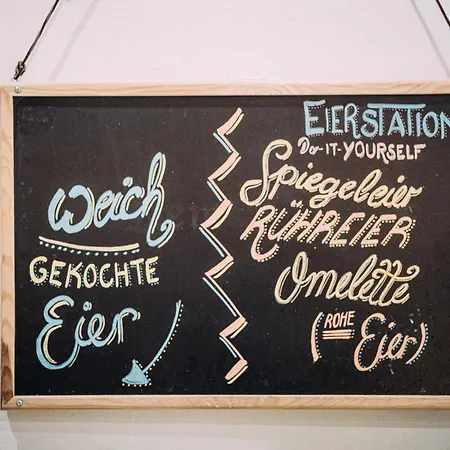 weich
GEKOCHTE
Eier
EIERSTATION
Do-IT-YOURSELF
Spiegeleier
RÜHREIER
Omelette
(ROHE Eier)